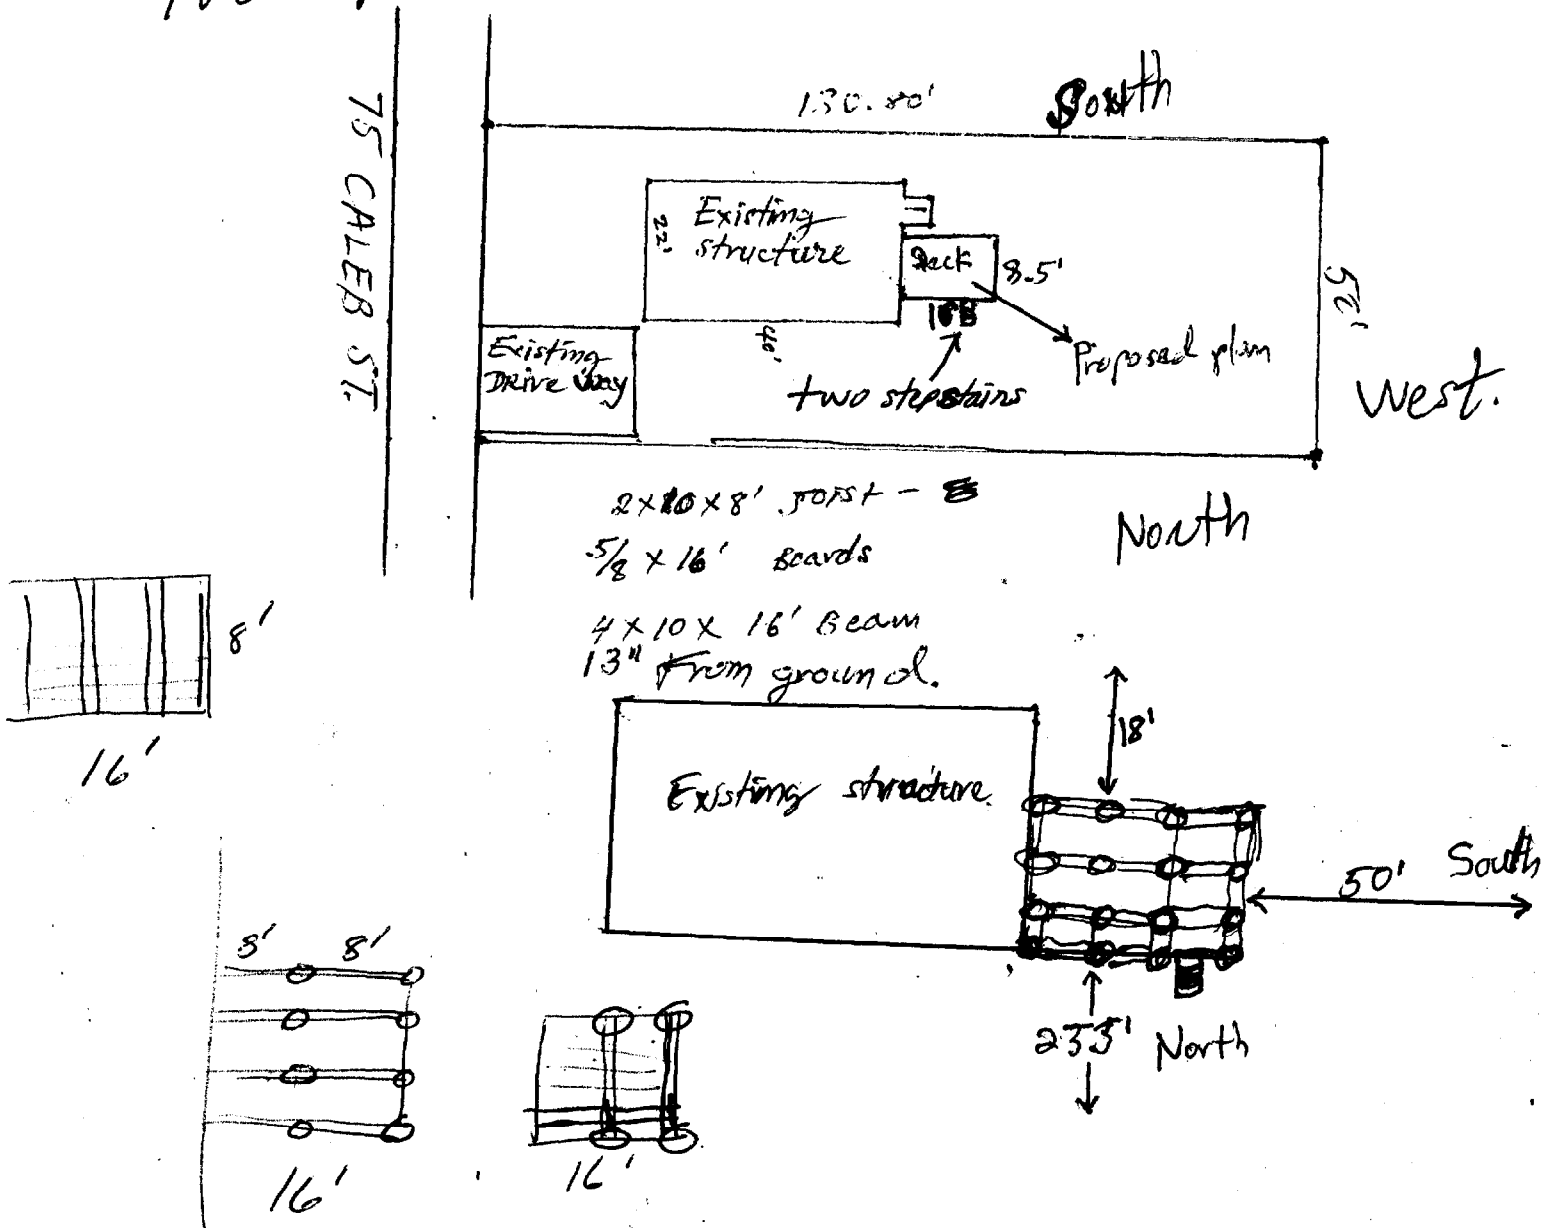 75 CALEB ST.
130.80'
South
Existing
structure
22'
40'
Deck
8.5'
50'
Existing
DRive Way
two step stairs
Proposed plan
West.
North
2x10x8' Joist -
5/8 x 16' Boards
4 x 10 x 16' Beam
13" From ground.
8'
16'
Existing structure.
18'
50'
South
North
8' 8'
16'
16'